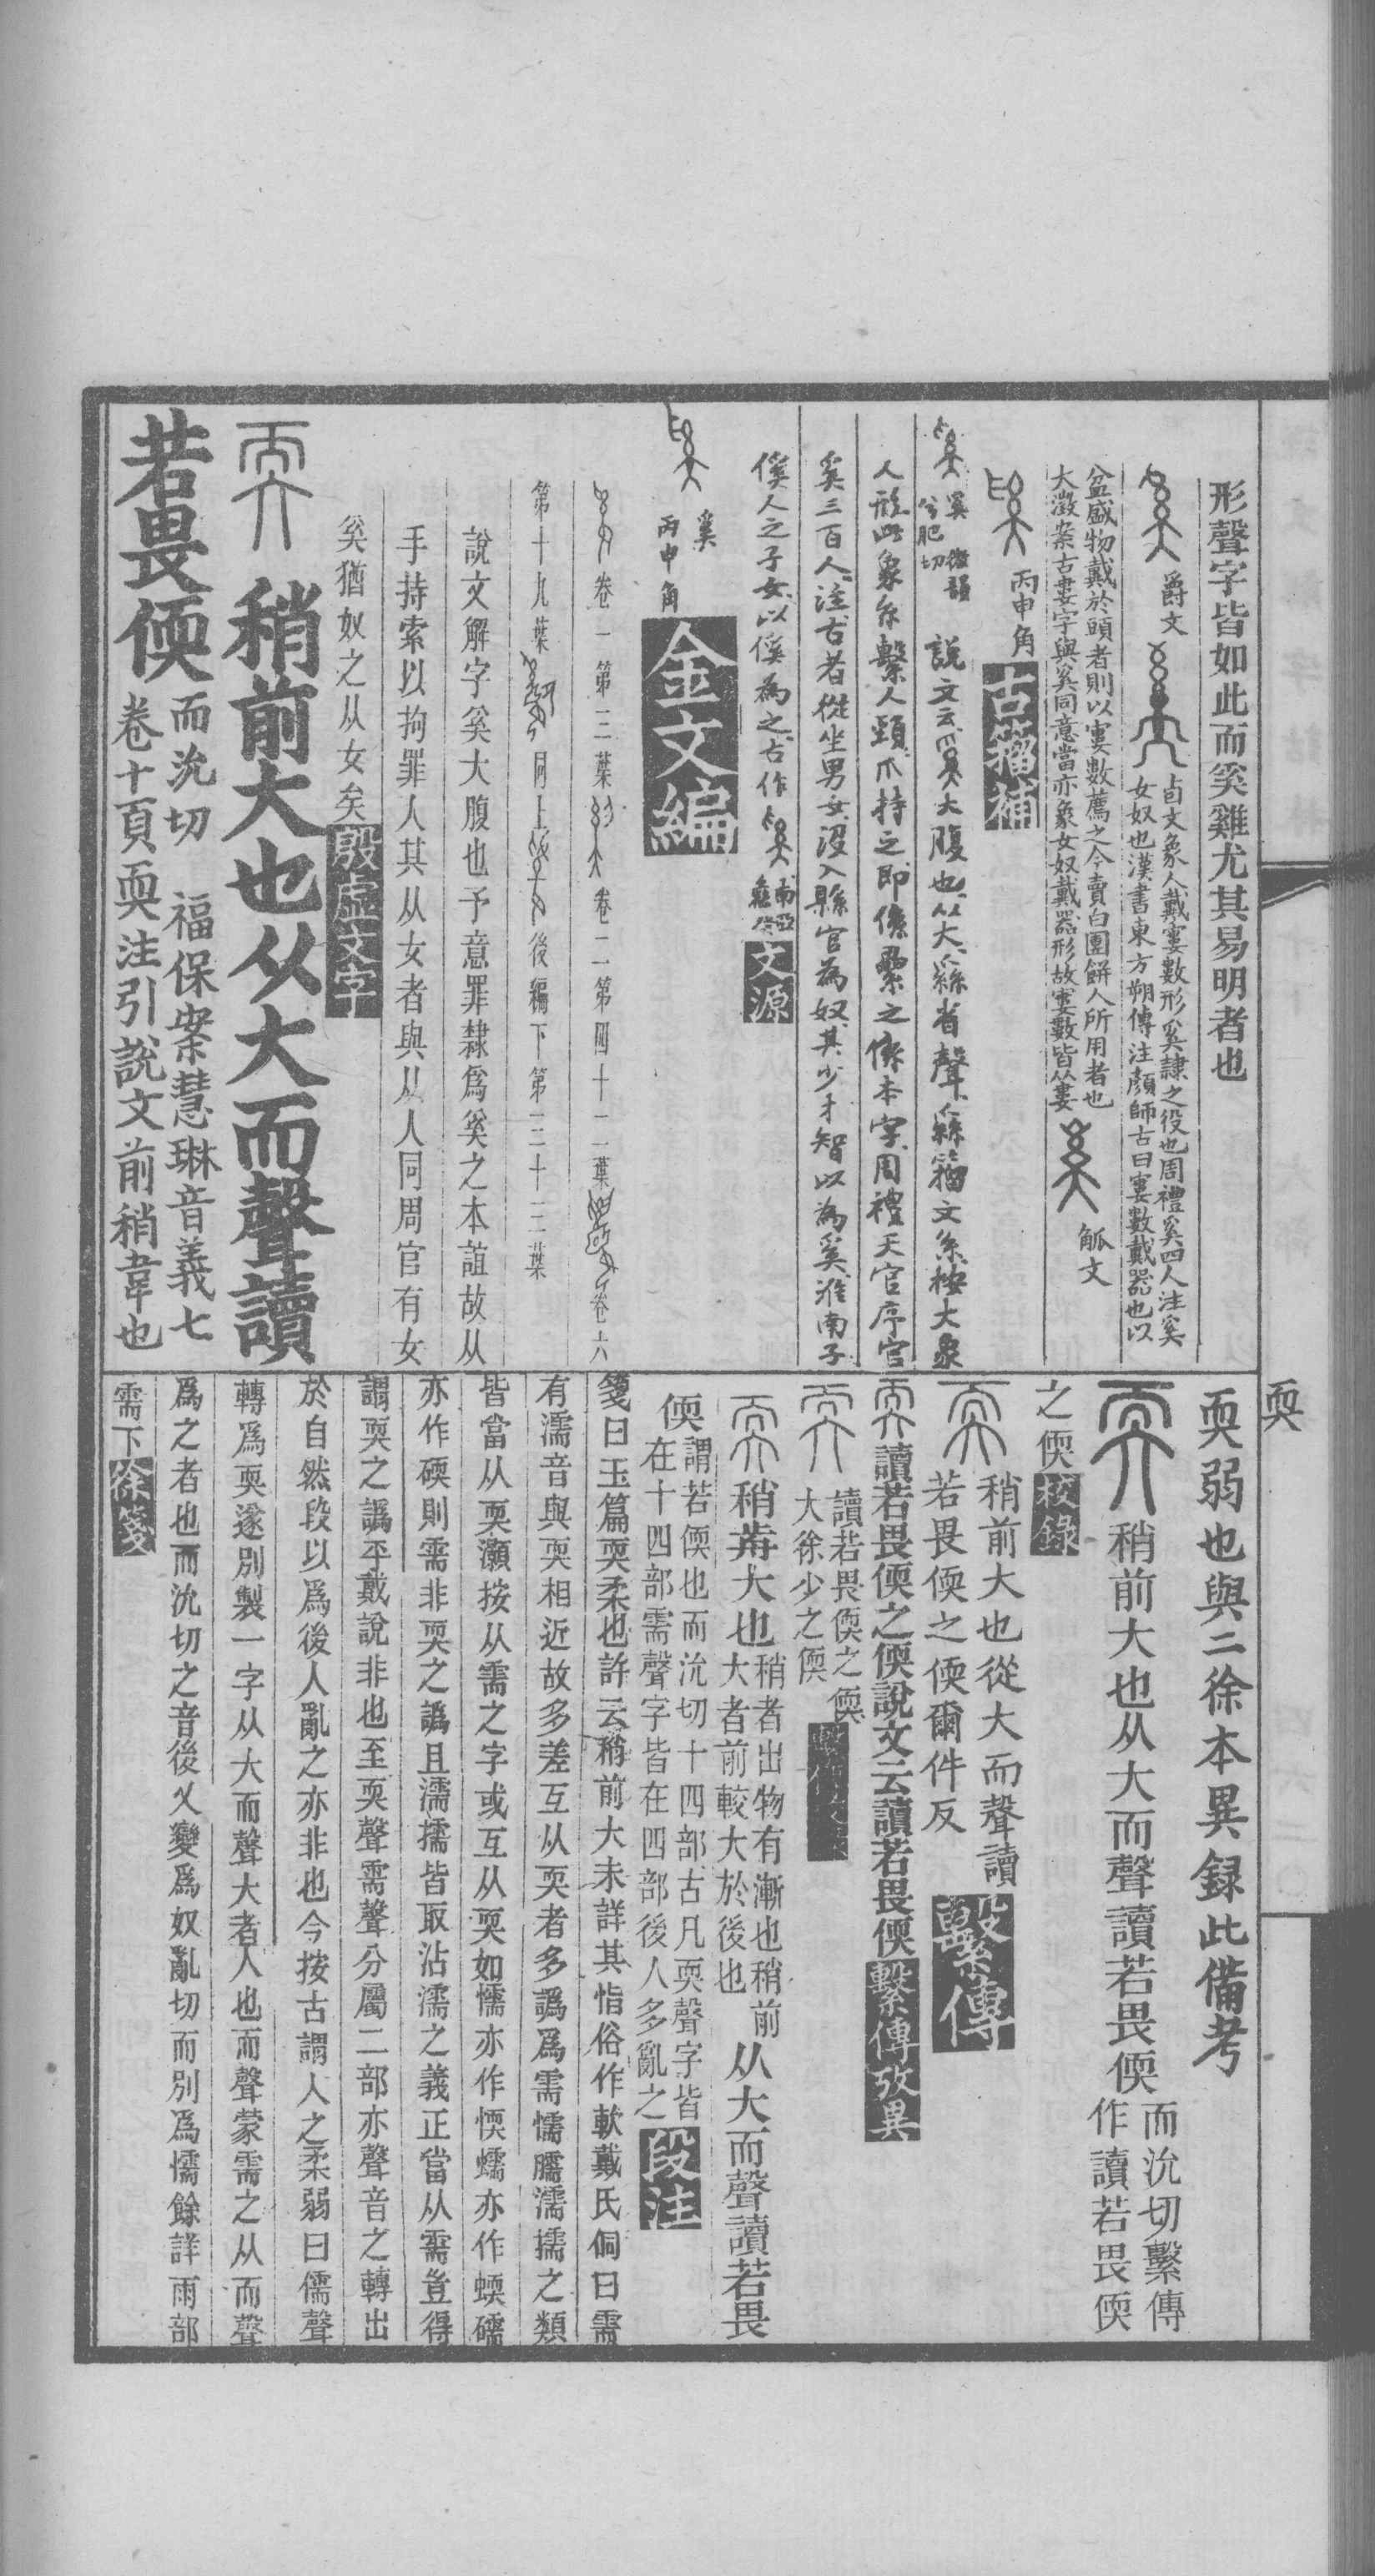 形聲字皆如此而奚雞尤其易明者也
爵文
卣文象人戴窶數形奚隸之役也周禮奚四人注奚
女奴也漢書東方朔傳注顏師古曰窶數戴器也以
盆盛物戴於頭者則以窶數薦之今賣白團餅人所用者也
大澂案古婁字與奚同意當亦象女奴戴器形故窶數皆从婁
觚文
丙申角
古籀補
奚
兮肥切
說文云大腹也从大𦃟省聲𦃟籀文系按大象
人形此象系繫人頸爪持之即係纍之係本字周禮天官序官
奚三百人注古者從坐男女沒入縣官為奴其少才智以為奚淮南子
傒人之子女以傒為之古作
文源
奚
丙申角
金文編
卷一第三葉
卷二第四十二葉
卷六
第十九葉
同上
後編下第三十三葉
說文解字奚大腹也予意罪隸爲奚之本誼故从
手持索以拘罪人其从女者與从人同周官有女
奚猶奴之从女矣
殷虛文字
稍前大也从大而聲讀
若畏偄
而沇切　福保案慧琳音義七
卷十頁耎注引說文前稍韋也
耎
耎弱也與二徐本異録此備考
稍前大也从大而聲讀若畏偄
而沇切繫傳
作讀若畏偄
之偄
校錄
稍前大也從大而聲讀
若畏偄之偄爾件反
繫傳
讀若畏偄之偄說文云讀若畏偄
繫傳攷異
讀若畏偄之偄
大徐少之偄
稍歬大也
稍者出物有漸也稍前
大者前較大於後也
从大而聲讀若畏
偄
謂若偄也而沇切十四部古凡耎聲字皆
在十四部需聲字皆在四部後人多亂之
段注
箋曰玉篇耎柔也許云稍前大未詳其恉俗作軟戴氏侗曰需
有濡音與耎相近故多差互从耎者多譌爲需懦臑濡擩之類
皆當从耎灝按从需之字或互从耎如懦亦作愞蠕亦作蝡礝
亦作碝則需非耎之譌且濡擩皆取沾濡之義正當从需豈得
謂耎之譌乎戴說非也至耎聲需聲分屬二部亦聲音之轉出
於自然段以爲後人亂之亦非也今按古謂人之柔弱曰儒聲
轉爲耎遂別製一字从大而聲大者人也而聲蒙需之从而聲
爲之者也而沇切之音後又變爲奴亂切而別爲懦餘詳雨部
需下
徐箋